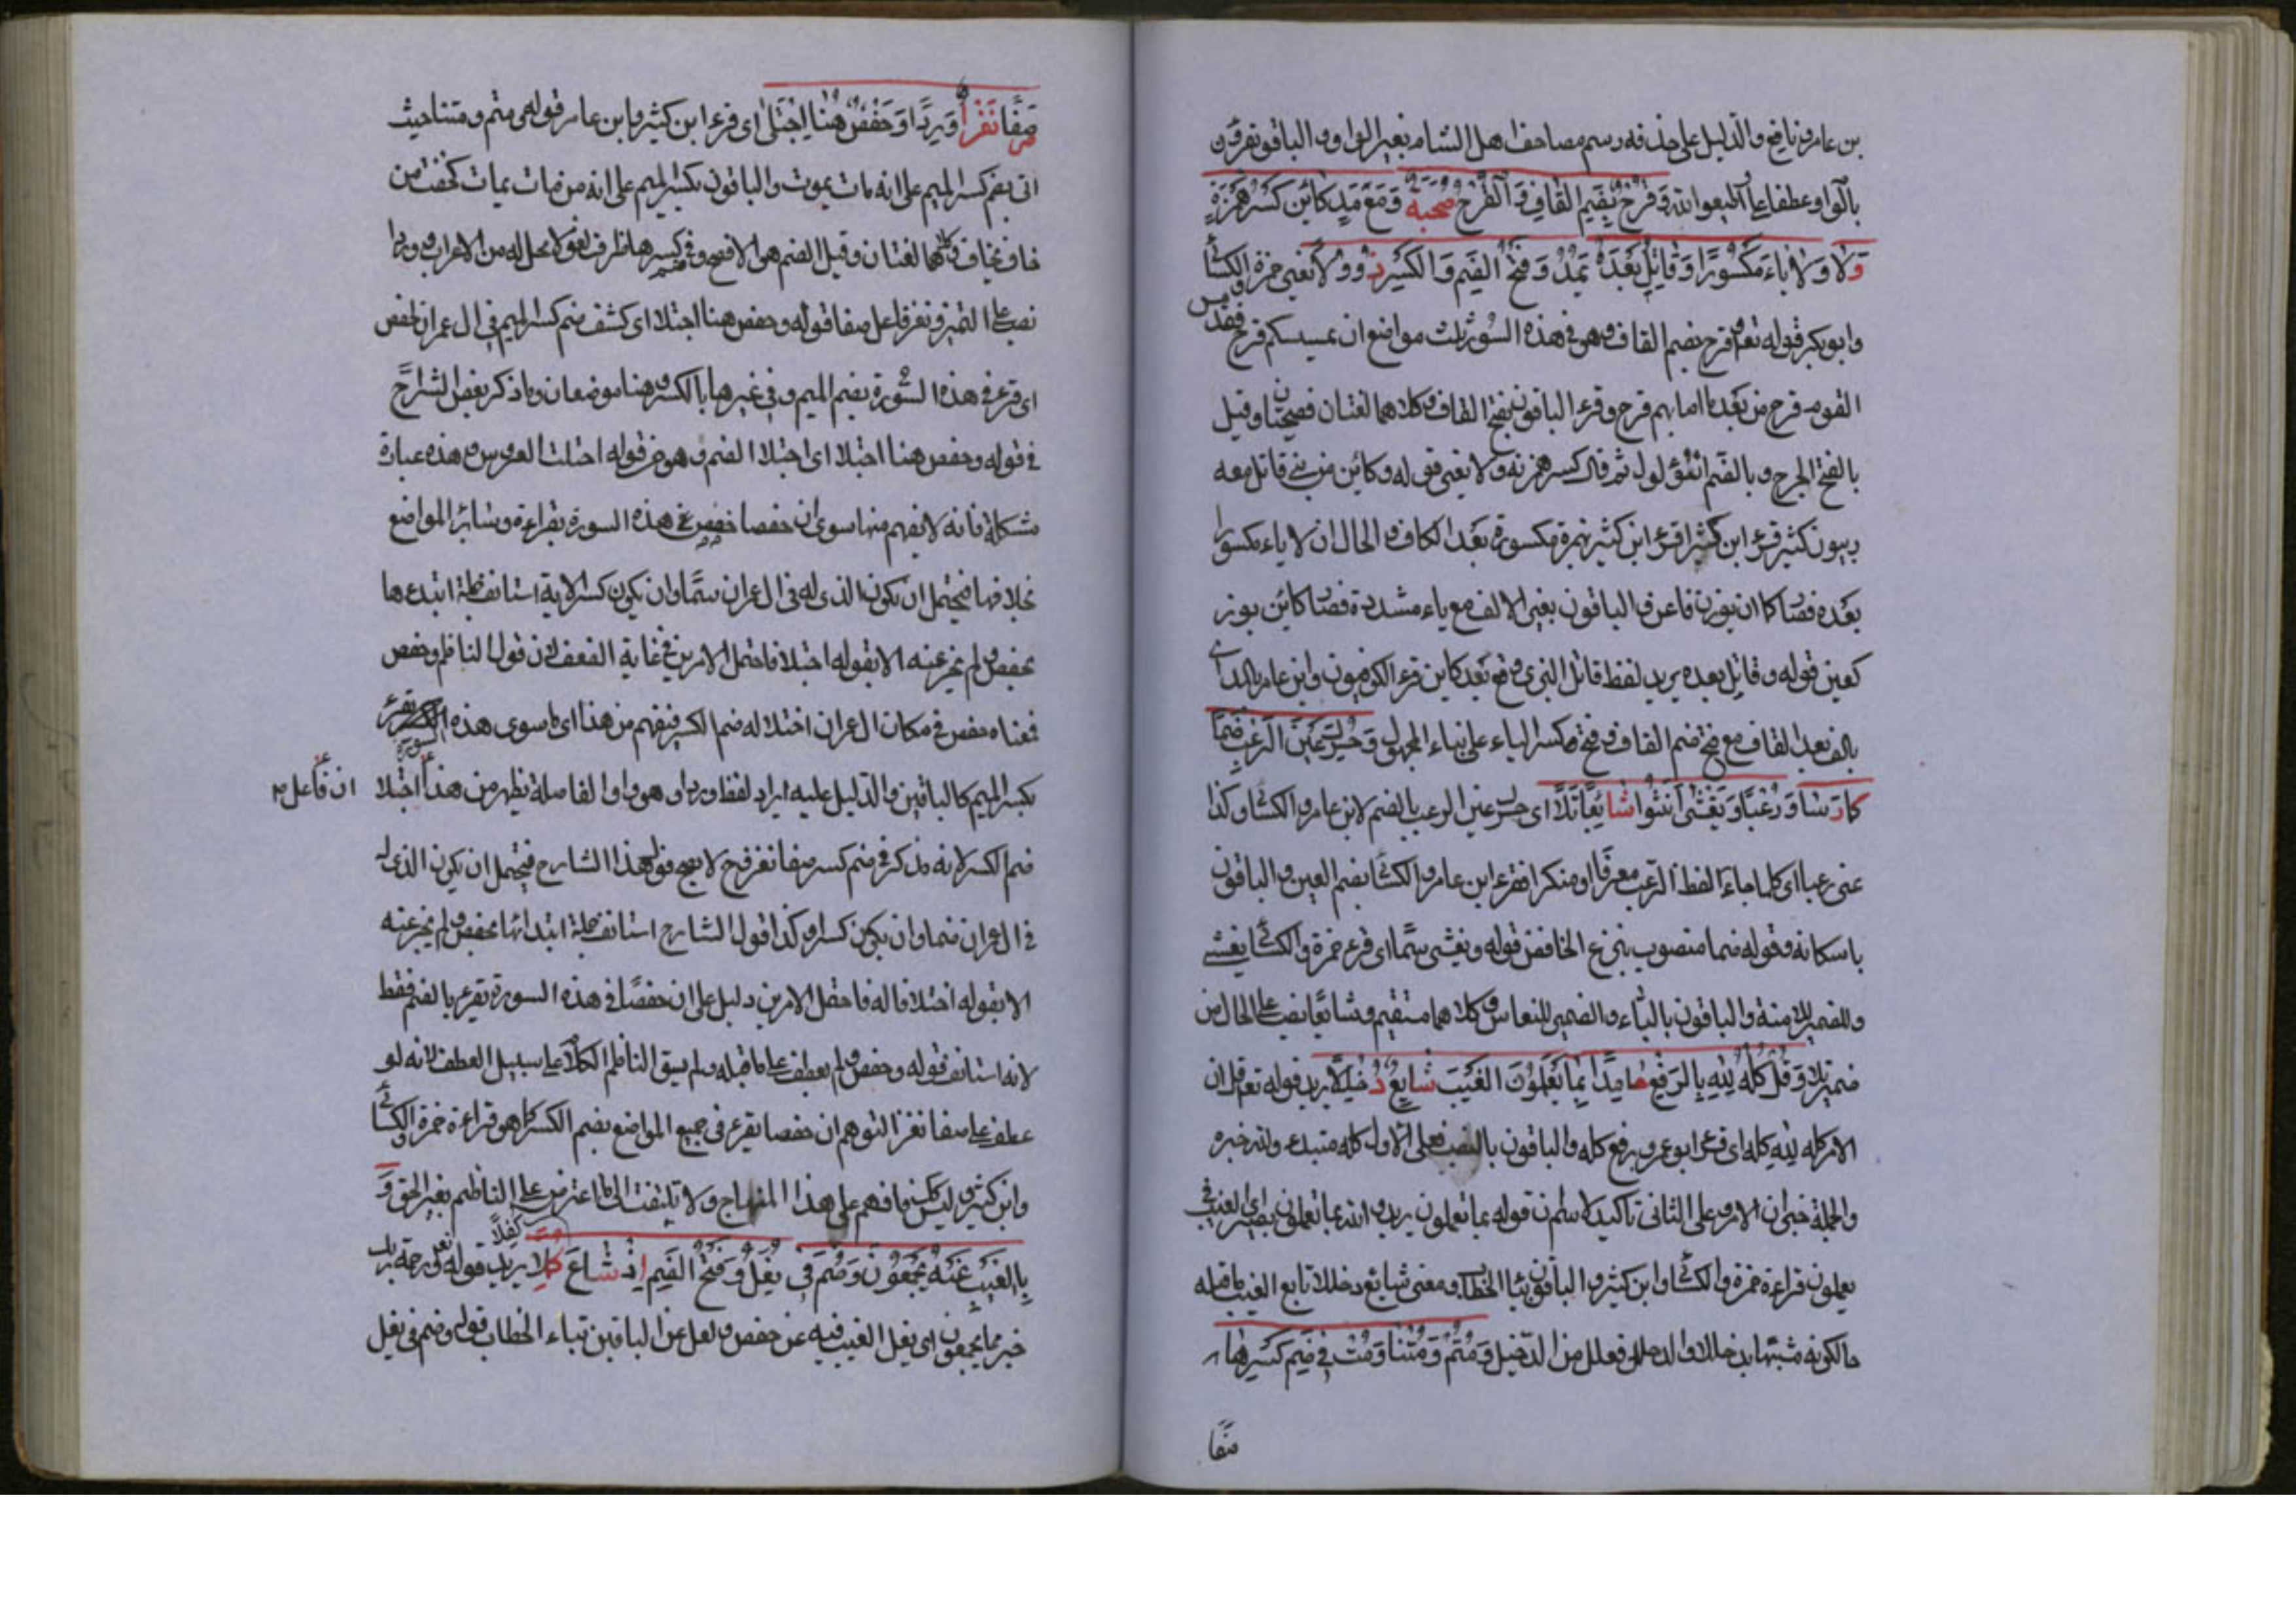 بن عامر ونافع والدليل على حذفه رسم مصاحف اهل الشام بغير الواو والباقون يقرؤن
بالواو عطفا على اطيعوا الله وَقَرْحٌ بِضَمِّ القَافِ وَالْقَرْحُ صُحْبَةٌ وَمَعَ مَدِّ كَائِنْ كَسْرُ هَمْزَتِهِ
دَلَا وَلَا يَاءَ مَكْسُورًا وَقَاتَلَ بَعْدَهُ يُمَدُّ وَفَتْحُ الضَّمِّ وَالْكَسْرِ ذُو وِلَا يعنى حمزة والكسائي
وابو بكر قوله تعالى قرح بضم القاف وهو في هذه السورة ثلث مواضع ان يمسسكم قرح فقد مس
القوم قرح من بعد ما اصابهم قرح وقرء الباقون بفتح القاف وكلاهما لغتان فصيحتان وقيل
بالفتح الجرح وبالضم ثم قال كسر همزته ولا يعنى قوله وكائن من نبي قاتل معه
ربيون كثير قرء ابن كثير بهمزة مكسورة بعد الكاف والحال ان لا ياء مكسورا
بعده فصار كائن بوزن فاعن والباقون بغير الالف مع ياء مشددة فصار كاين بوزن
كعين قوله وقاتل بعده يريد لفظ قاتل الذى وقع بعد كاين قرء الكوفيون وابن عامر بالمد اى
بالف بعد القاف مع فتح ضم القاف وفتح كسر التاء على بناء المجهول وَحُرِّكَ عَيْنُ الرُّعْبِ ضَمًّا
كما رَسَا وَرُعْبًا وَيَغْشَى أَنَّثُوا شَائِعًا تَلَا اى حرك عين الرعب بالضم لابن عامر والكسائي وكذا
عين رعبا اى كلما جاء لفظ الرعب معرفا او منكرا فقرء ابن عامر والكسائي بضم العين والباقون
باسكانه وقوله ضما منصوب بنزع الخافض قوله ويغشى اى قرء حمزة والكسائي يغشى
والضمير للامنة والباقون بالياء والضمير للنعاس وكلاهما مستقيم وشائعا نصب على الحال من
ضمير تلا وَقُلْ كُلُّهُ لِلّٰهِ بِالرَّفْعِ حَامِدًا بِمَا يَعْمَلُونَ الغَيْبَ شَايَعَ دُخْلُلَا يريد قوله تعالى قل ان
الامر كله لله كله اى قرء ابو عمرو برفع كله والباقون بالنصب فعلى الاول كله مبتدء ولله خبره
والجملة خبر ان الامر وعلى الثانى تاكيد لاسم ان قوله بما يعملون يريد والله بما تعملون بصير اى الغيب في
يعملون قراءة حمزة والكسائي وابن كثير والباقون بتا الخطاب ومعنى شايع دخللا تابع الغيب ما قبله
حالكونه مشبها بدخللا والدخلل فعلل من الدخيل وَمُتُّمْ وَمُتْنَا وَمُتُّ فِي ضَمِّ كَسْرِهَا
صفا
صَفَا نَفَرٌ وِرْدًا وَحَفْصٌ هُنَا اجْتَلَى اى قرء ابن كثير وابن عامر قوله متم ومتنا حيث
اتى بضم كسر الميم على انه مات يموت والباقون بكسر الميم على انه من مات يمات كخفت من
خاف يخاف وكلاهما لغتان وقيل الضم هو الافصح وفي ضم كسرها ظرف لغو لا محل له من الاعراب ووردا
نصب على التميز ونفر فاعل صفا قوله وحفص هنا اجتلا اى كشف ضم كسر الميم في ال عمران لحفص
اى قرء في هذه السورة بضم الميم وفي غيرها بالكسر وهنا موضعان وما ذكر بعض الشراح
في قوله وحفص هنا اجتلا اى اجتلا الضم وهو من قوله اجتلت العروس وهذه عبارة
مشكلة فانه لا يفهم منها سوى ان حفصا خصص في هذه السورة بقراءة وسائر المواضع
بخلافها فيحتمل ان يكون الذى له في ال عمران ضما وان يكون كسرا لانه استانف جملة ابتدءها
بحفص ولم يخبر عنه الا بقوله اجتلا فاحتمل الامرين في غاية الضعف لان قول الناظم وحفص
فمعناه حفص في مكان ال عمران اجتلا له ضم الكسر فيفهم من هذا اى ما سوى هذه السورة يقرء
بكسر الميم كالباقين والدليل عليه ايراد لفظ وردا وهو واو الفاصلة يظهر من هذا ان فاعل اجتلا
ضم الكسر لانه مذكر في ضم كسر صفا نفر فح لا يصح قول هذا الشارح فيحتمل ان يكون الذى له
في ال عمران ضما وان يكون كسرا وكذا قول الشارح استانف جملة ابتدائها بحفص ولم يخبر عنه
الا بقوله اجتلا فاحتمل الامرين دليل على ان حفصا في هذه السورة يقرء بالضم فقط
لانه استانف قوله وحفص ولم يعطف على ما قبله ولم يسق الناظم الكلام على سبيل العطف لانه لو
عطف على صفا نفر لتوهم ان حفصا يقرء في جميع المواضع بضم الكسر كما هو قراءة حمزة والكسائي
وابن كثير وليس كك فافهم على هذا المنهاج ولا تلتفت الى ما اعترض على الناظم بغير الحق وَ
بِالغَيْبِ عَنْهُ يَجْمَعُونَ وَضُمَّ فِي يَغُلَّ وَفَتْحُ الضَّمِّ إِذْ شَاعَ كُفِّلَا يريد قوله تعالى ورحمة ربك
خير مما يجمعون اى نقل الغيب فيه عن حفص ونقل عن الباقين بتاء الخطاب قوله وضم في يغل